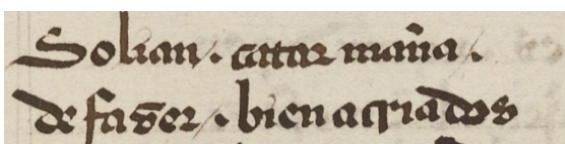 Solian . catar mañа .
de fazer . bien a criados